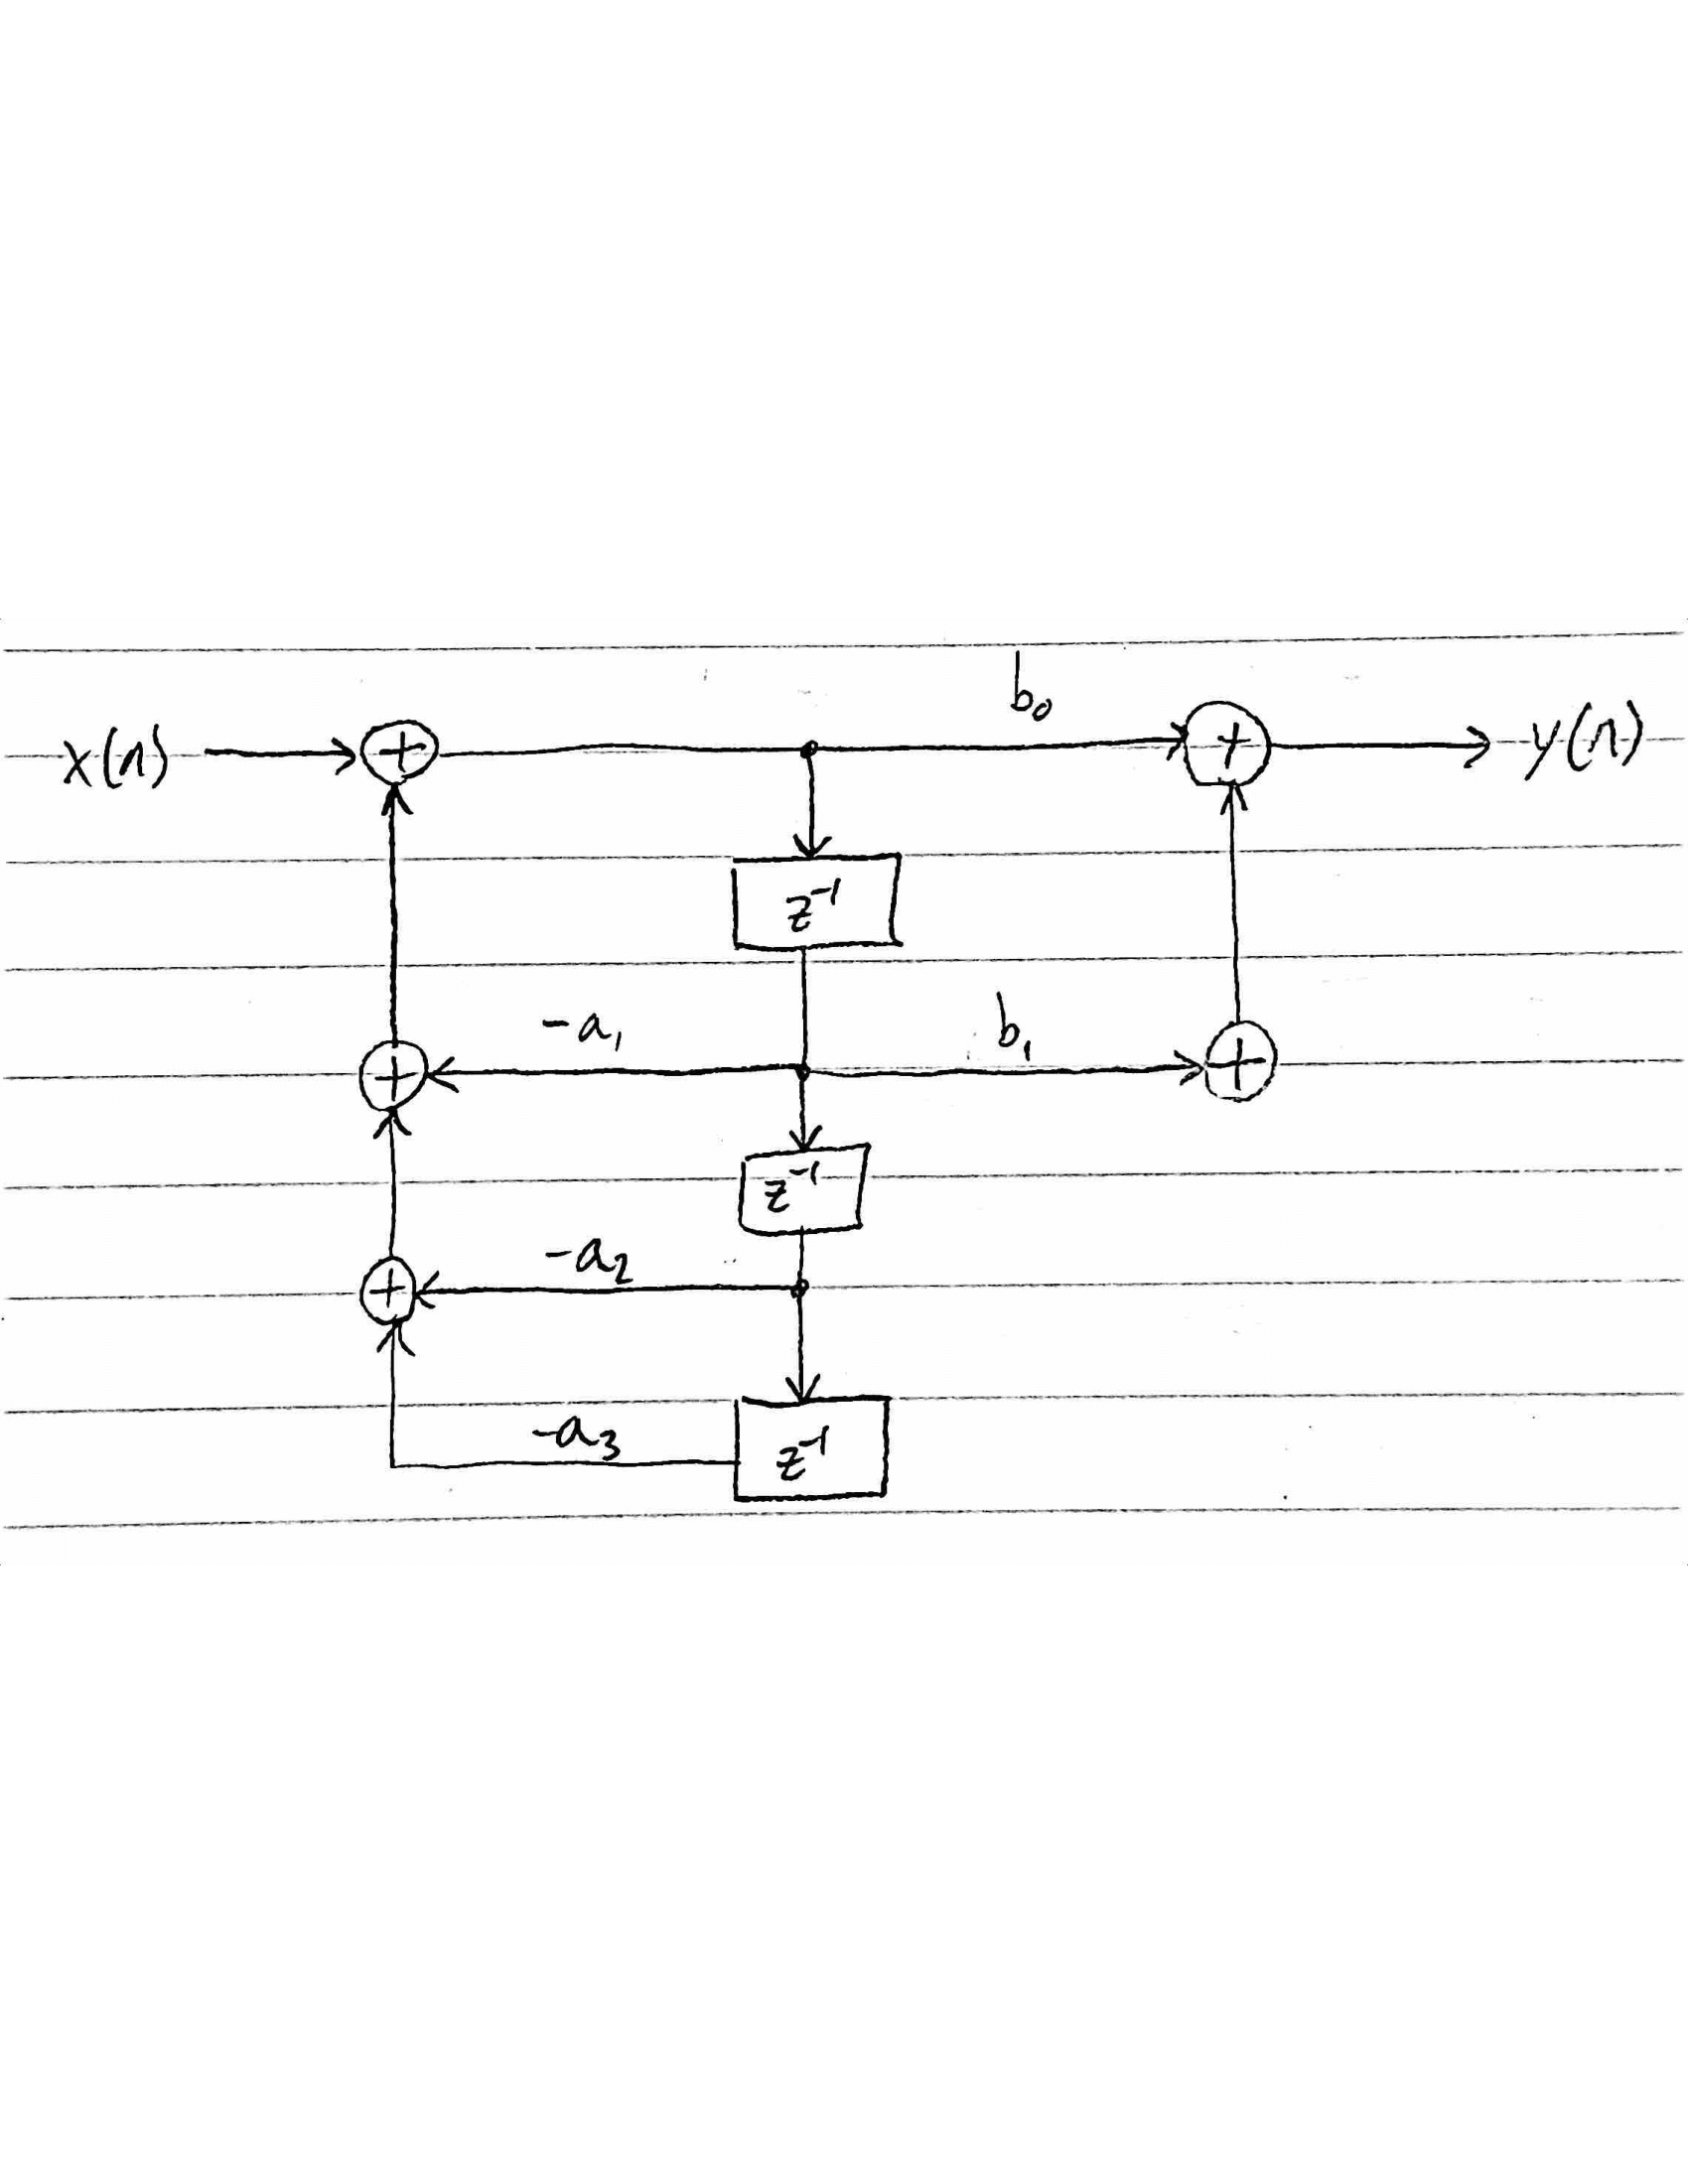 b₀
x(n) + + y(n)
z⁻¹
-a₁ b₁
+ +
z⁻¹
-a₂
+
-a₃ z⁻¹